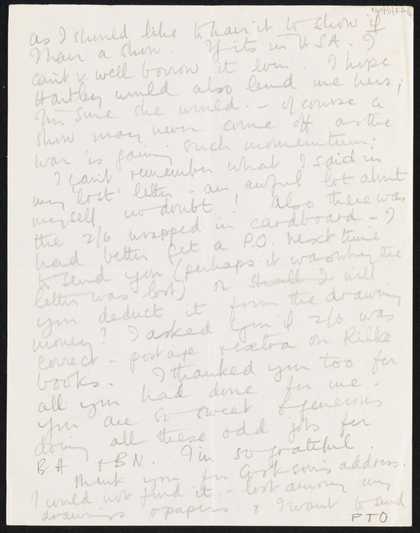 as I should like to have it to show if
I have a show. If its in U.S.A. I
can't v. well borrow it even. I hope
Hartley would also lend me hers;
I'm sure she would. - of course a
show may never come off as the
war is gaining such momentum;
I can't remember what I said in
my 'lost' letter - an awful lot about
myself no doubt; also there was
the 2/6 wrapped in cardboard - I
had better get a P.O. next time
to send you (perhaps it was why the
letter was lost) or shall I will
you deduct it from the drawing
money? I asked you if 2/6 was
correct - postage extra on Rilke
books. I thanked you too for
all you had done for me.
You are so sweet & generous
doing all these odd jobs for
BH + BN. I'm so grateful.
Thank you for address.
I could not find it - lost among my
drawings & papers & I want to send
PTO